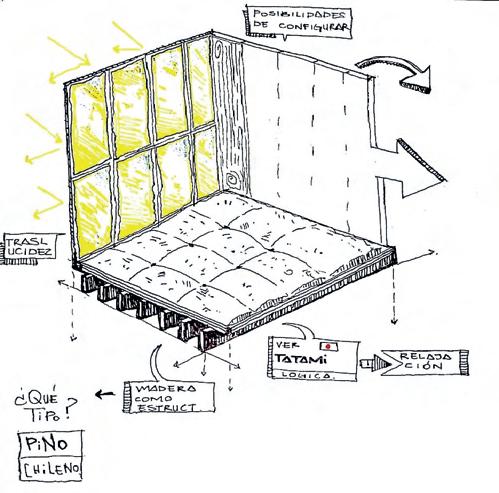 POSIBILIDADES
DE CONFIGURAR
TRASL
UCIDEZ
VER
TATAMi
LOGICA.
RELAJA
CIÓN
MADERA
COMO
ESTRUCT
¿QUÉ
TiPO?
PiÑO
CHiLENO